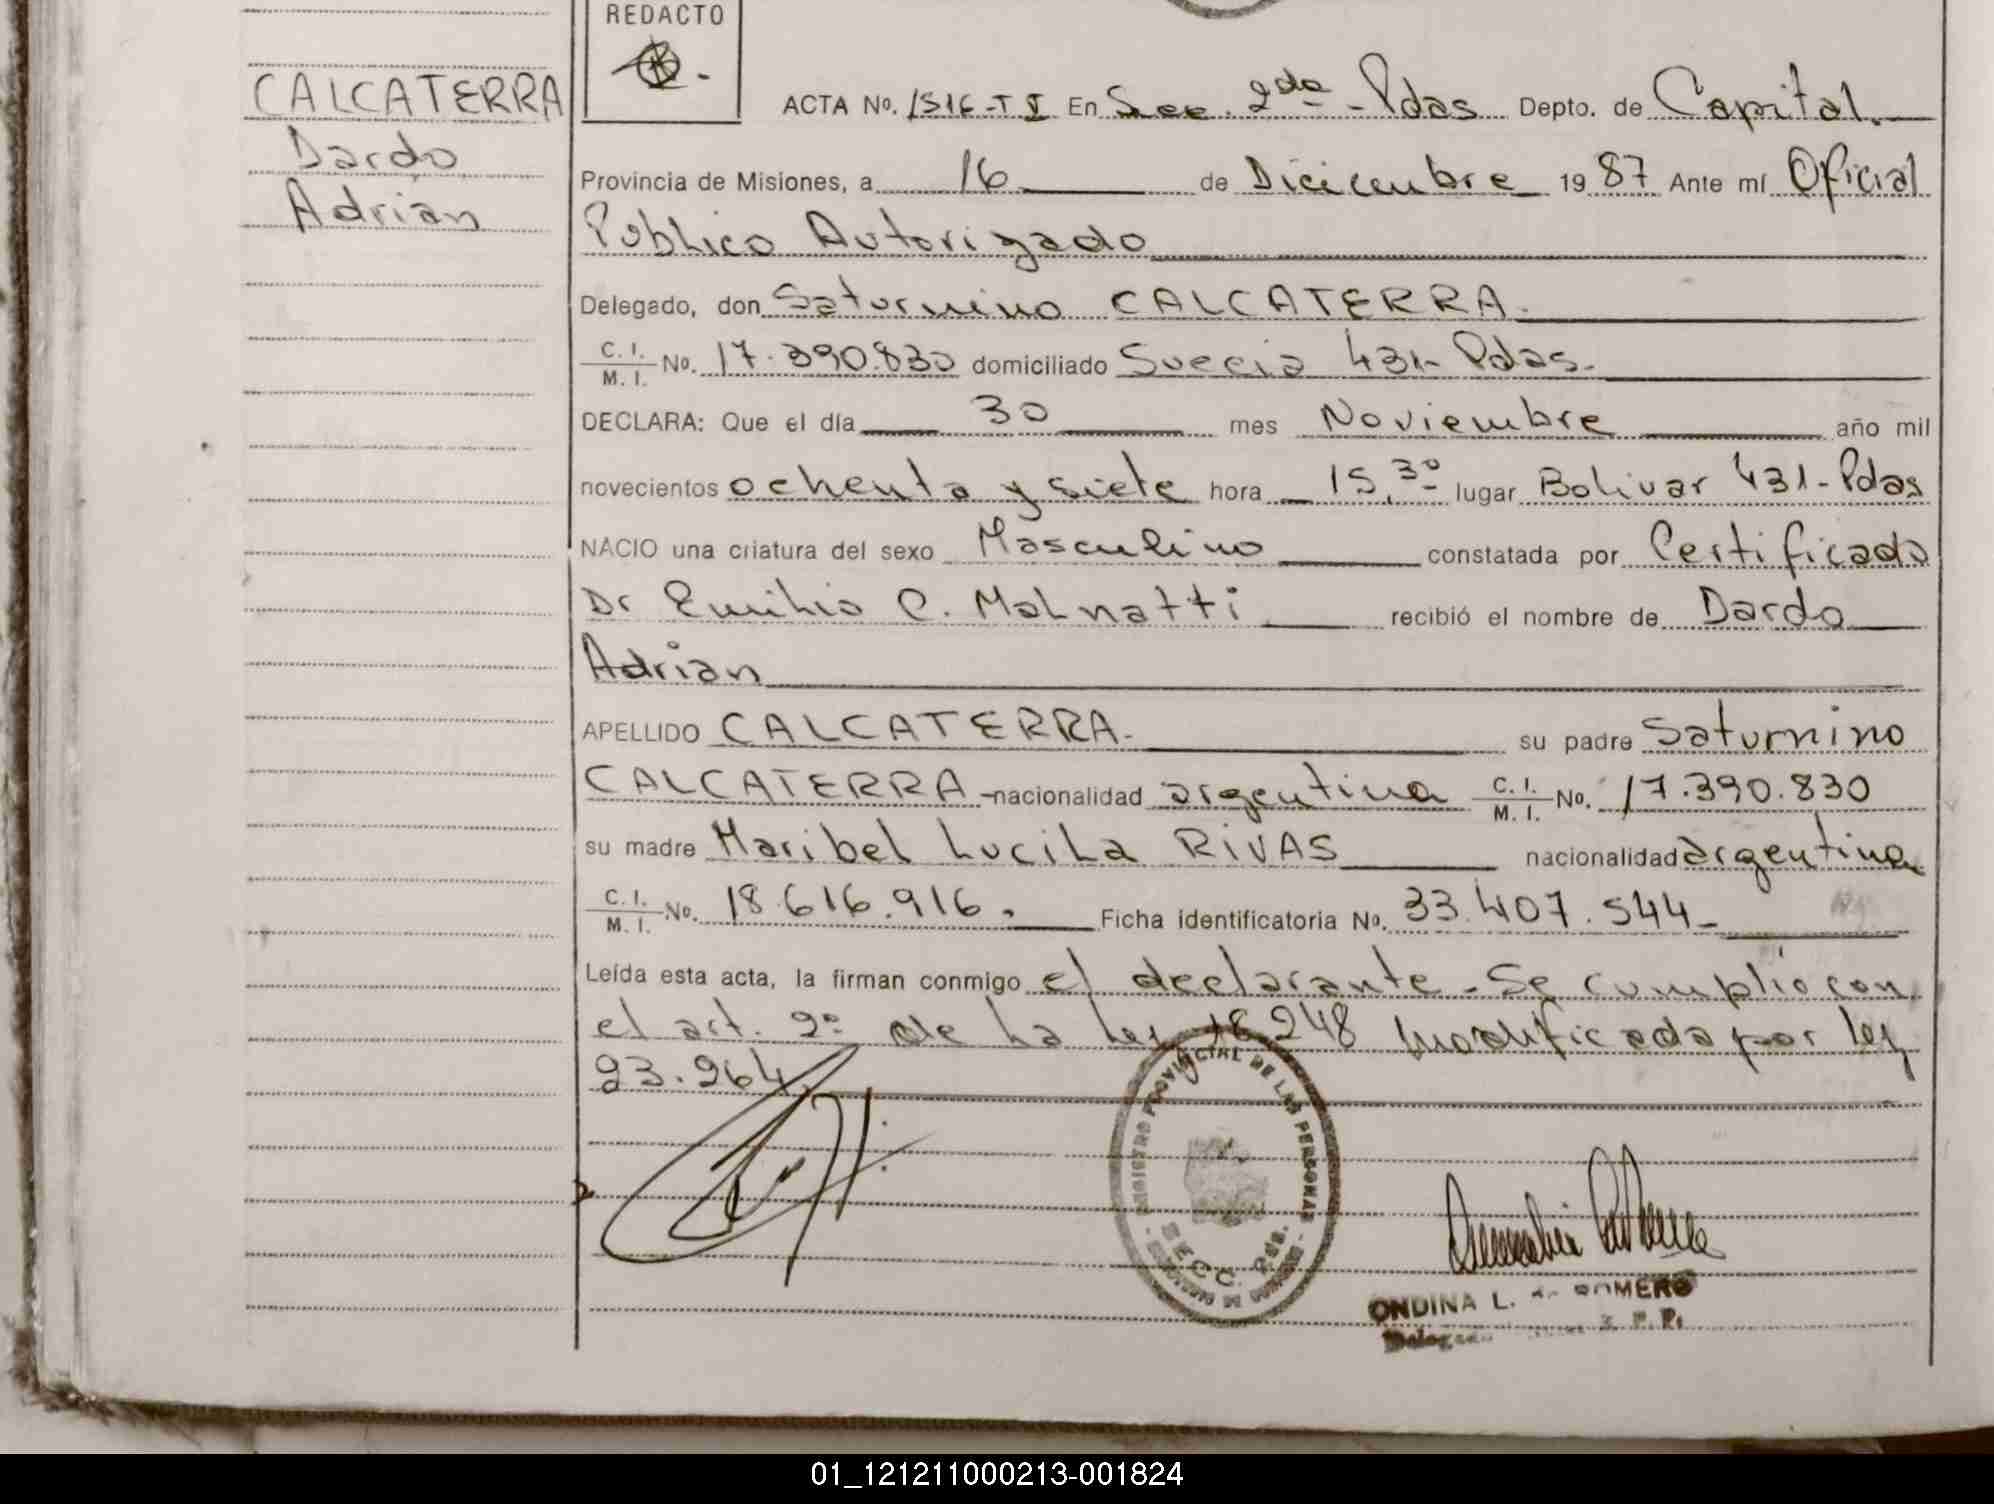 REDACTO
CALCATERRA
Dardo
Adrian
ACTA No. 1516-T I En Secc. 2da - Pdas Depto. de Capital.
Provincia de Misiones, a 16 de Diciembre 1987 Ante mí Oficial
Público Autorizado
Delegado, don Saturnino CALCATERRA.
C. I. / M. I. No. 17.390.830 domiciliado Suecia 431- Pdas.
DECLARA: Que el día 30 mes Noviembre año mil
novecientos ochenta y siete hora 15,30 lugar Bolivar 431- Pdas
NACIO una criatura del sexo Masculino constatada por Certificado
Dr Emilio C. Malnatti recibió el nombre de Dardo
Adrian
APELLIDO CALCATERRA- su padre Saturnino
CALCATERRA - nacionalidad argentina C. I. / M. I. No. 17.390.830
su madre Maribel Lucila RIVAS nacionalidad argentina
C. I. / M. I. No. 18.616.916. Ficha identificatoria No. 33.407.544-
Leída esta acta, la firman conmigo el declarante - Se cumplió con
el art. 2º de la ley 18248 modificada por ley
23.264.
REGISTRO PROVINCIAL DE LAS PERSONAS
SECC. 2 Pds.
ONDINA L. de ROMERO
01_121211000213-001824